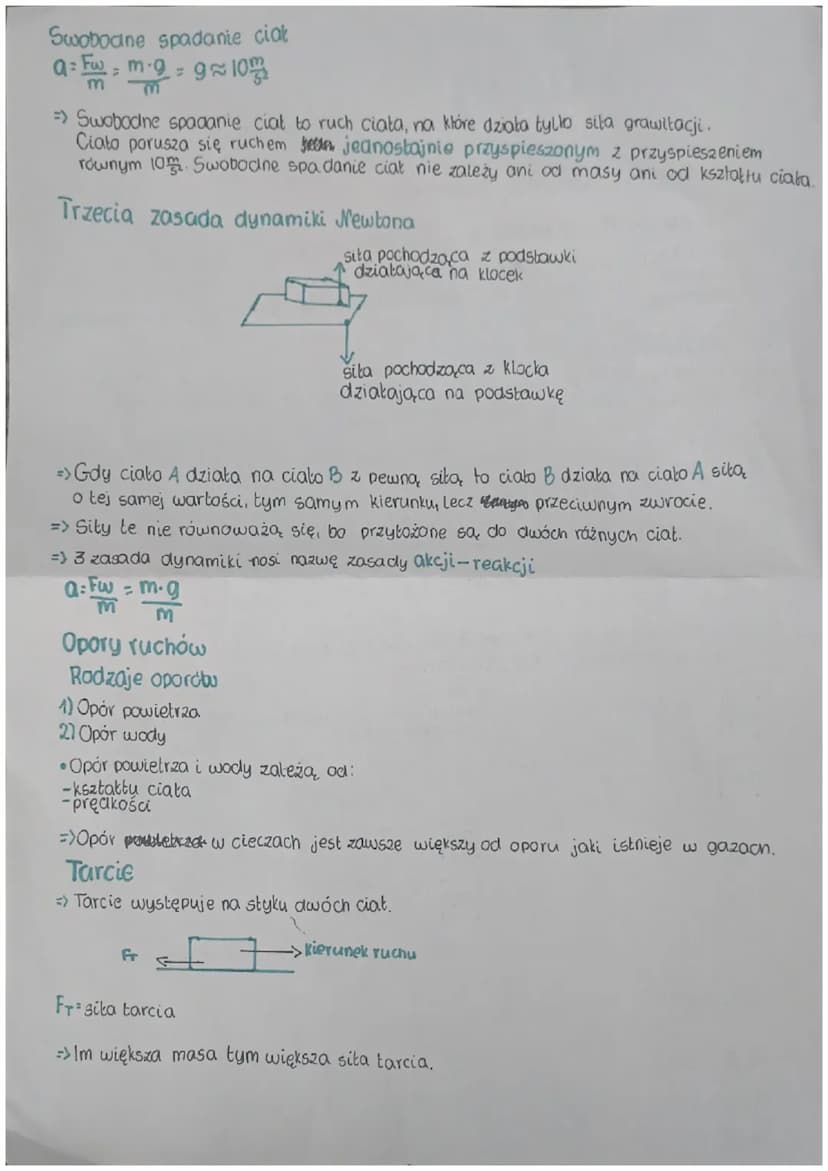 Swobodne spadanie ciał
a = Fw/m = m·g/m = g ≈ 10 m/s²
=> Swobodne spadanie ciał to ruch ciała, na które działa tylko siła grawitacji.
Ciało porusza się ruchem jednostajnie przyspieszonym z przyspieszeniem
równym 10 m/s². Swobodne spadanie ciał nie zależy ani od masy ani od kształtu ciała.
Trzecia zasada dynamiki Newtona
siła pochodząca z podstawki
działająca na klocek
siła pochodząca z klocka
działająca na podstawkę
=> Gdy ciało A działa na ciało B z pewną siłą, to ciało B działa na ciało A siłą
o tej samej wartości, tym samym kierunku, lecz przeciwnym zwrocie.
=> Siły te nie równoważą się, bo przyłożone są do dwóch różnych ciał.
=> 3 zasada dynamiki nosi nazwę zasady akcji-reakcji
a = Fw/m = m·g/m
Opory ruchów
Rodzaje oporów
1) Opór powietrza
2) Opór wody
• Opór powietrza i wody zależą od:
- kształtu ciała
- prędkości
=> Opór w cieczach jest zawsze większy od oporu jaki istnieje w gazach.
Tarcie
=> Tarcie występuje na styku dwóch ciał.
FT
kierunek ruchu
FT = siła tarcia
=> Im większa masa tym większa siła tarcia.